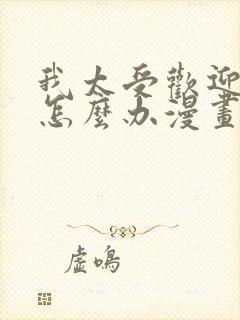 我太受歡迎
怎麼办漫畫
虛鳴